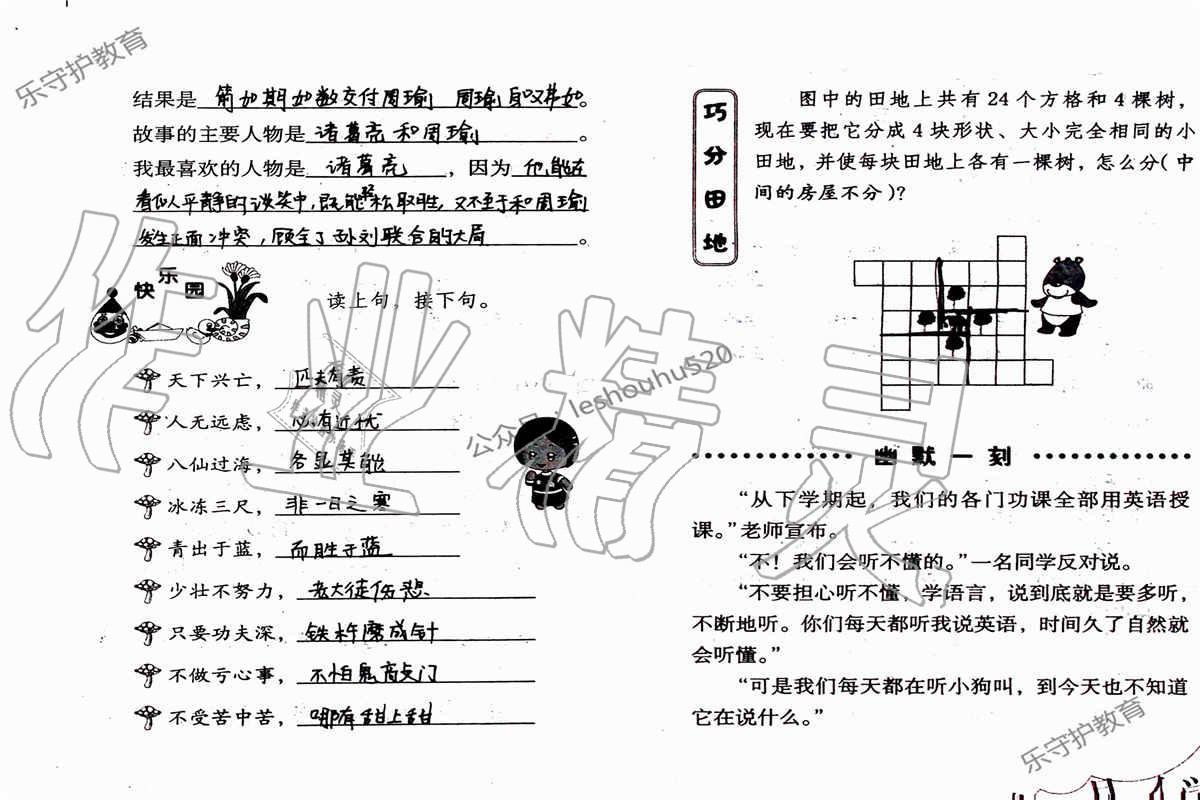 乐守护教育
结果是 箭如期如数交付周瑜 周瑜自叹弗如。
故事的主要人物是 诸葛亮和周瑜 。
我最喜欢的人物是 诸葛亮 ，因为 他能在
看似平静的谈笑中，既能轻松取胜，又不至于和周瑜
发生正面冲突，顾全了孙刘联合的大局 。
快乐园
读上句，接下句。
天下兴亡， 匹夫有责
人无远虑， 必有近忧
八仙过海， 各显其能
冰冻三尺， 非一日之寒
青出于蓝， 而胜于蓝
少壮不努力， 老大徒伤悲
只要功夫深， 铁杵磨成针
不做亏心事， 不怕鬼敲门
不受苦中苦， 哪有甜上甜
作业精灵
公众号：leshouhu520
巧分田地
图中的田地上共有 24 个方格和 4 棵树，
现在要把它分成 4 块形状、大小完全相同的小
田地，并使每块田地上各有一棵树，怎么分（中
间的房屋不分）？
幽默一刻
“从下学期起，我们的各门功课全部用英语授
课。”老师宣布。
“不！我们会听不懂的。”一名同学反对说。
“不要担心听不懂，学语言，说到底就是要多听，
不断地听。你们每天都听我说英语，时间久了自然就
会听懂。”
“可是我们每天都在听小狗叫，到今天也不知道
它在说什么。”
乐守护教育